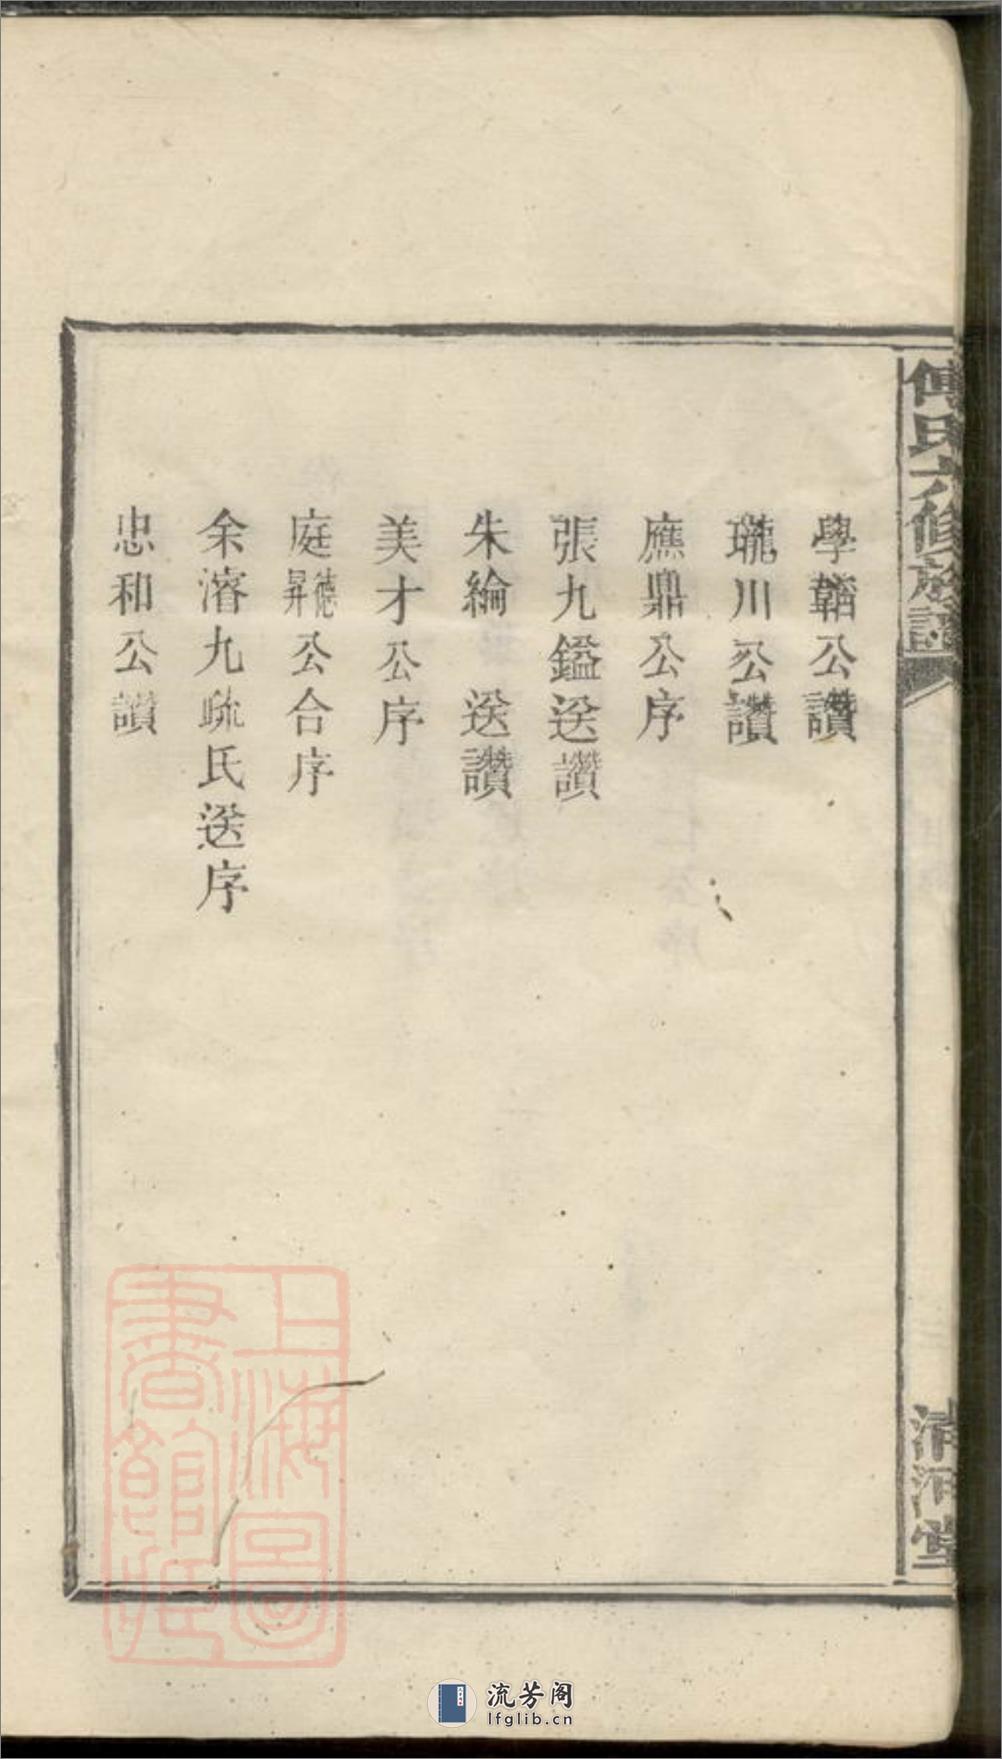 傅氏六修族譜
學韜公讚
瓏川公讚
應鼎公序
張九鎰送讚
朱綸 送讚
美才公序
庭德昇公合序
余濬九疏氏送序
忠和公讚
清河堂
上海图
流芳阁
lfglib.cn